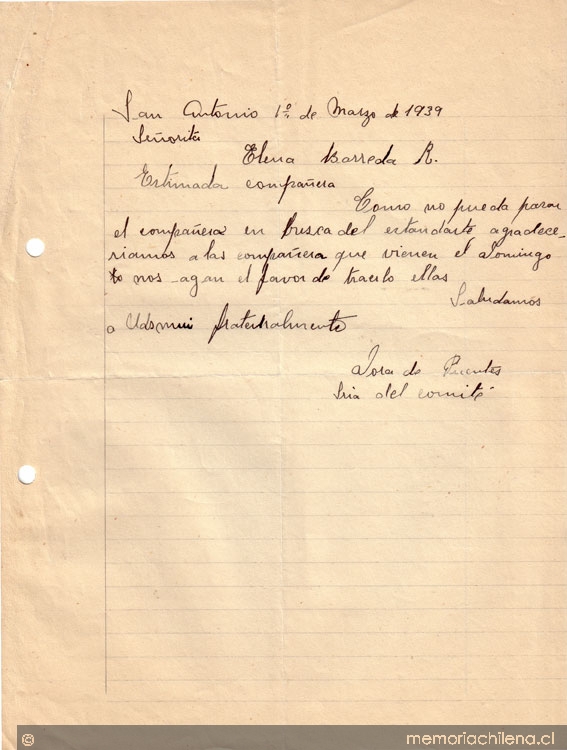 San Antonio 1º de Marzo de 1939
Señorita
Elena Barreda R.
Estimada compañera
Como no pueda pasar
el compañera en busca del estandarte agradece-
riamos a las compañera que vienen el Domingo
nos agan el favor de traerlo ellas
Saludamos
a Uds mui fraternalmente
de Puentes
Sria del comité
© memoriachilena.cl